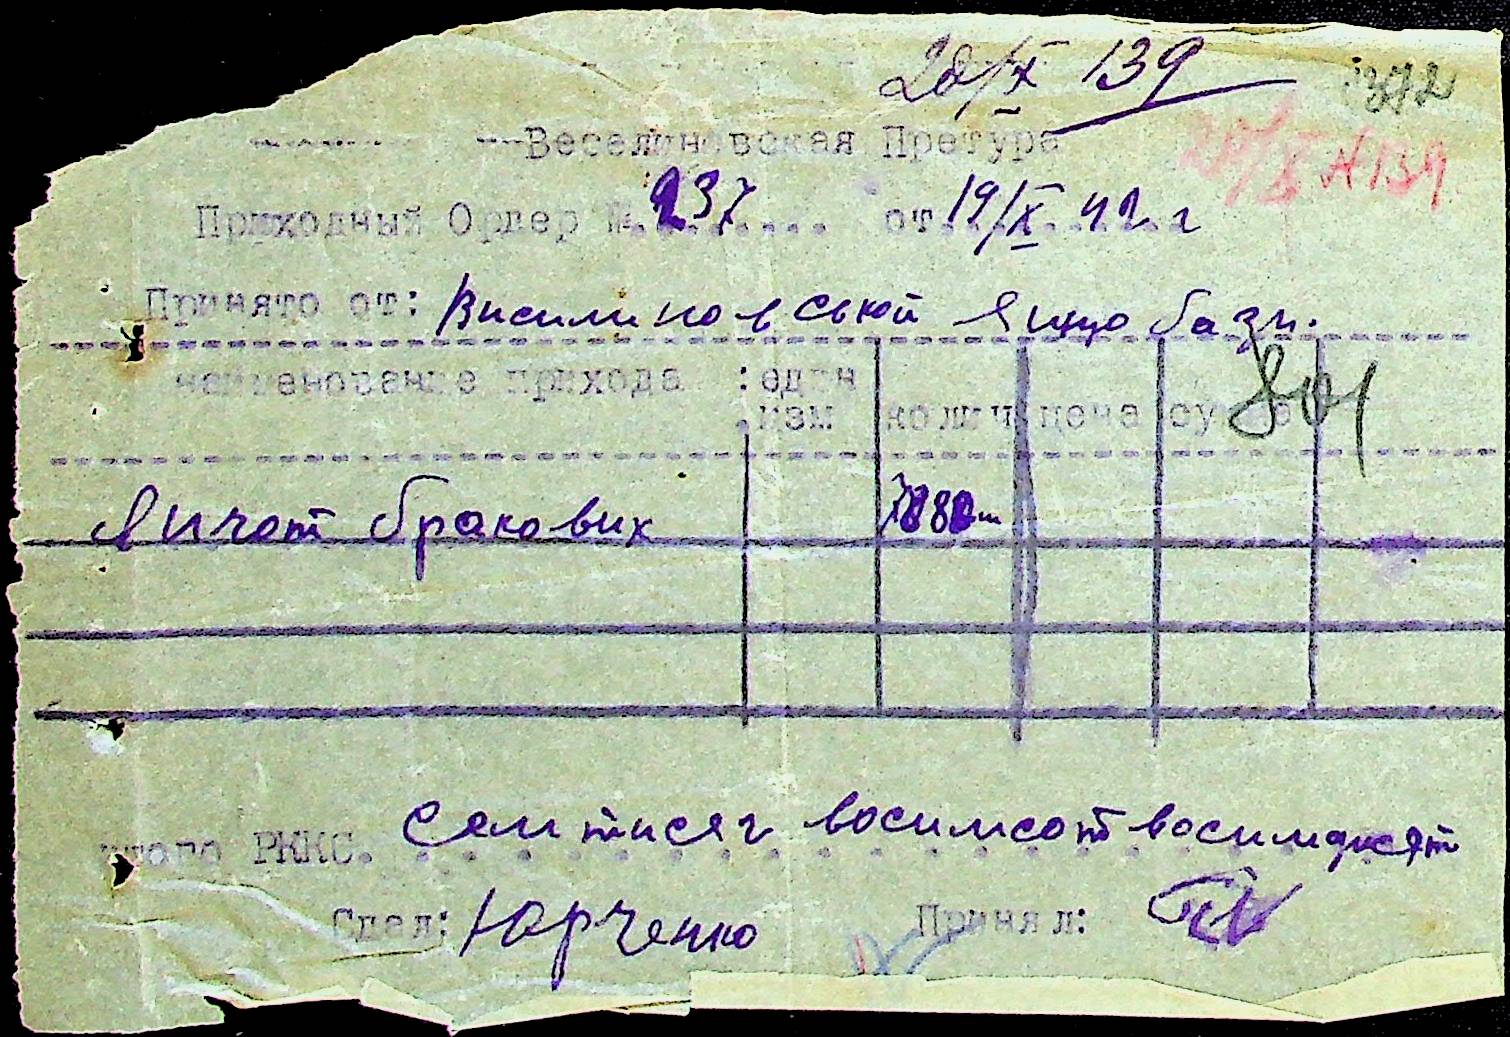 20/X 139
372
--Веселиновская Претура
20/X №139
Приходный Ордер №.237.... от 19/X 42 г
Принято от: Висилиновської Яицо бази.
наименование прихода :един
.изм колич цена су 801
Яичот бракових 7880 ш
итого РККС. Сем тисяч восимсот восимдисят
Сдал: Юрченко Принял: